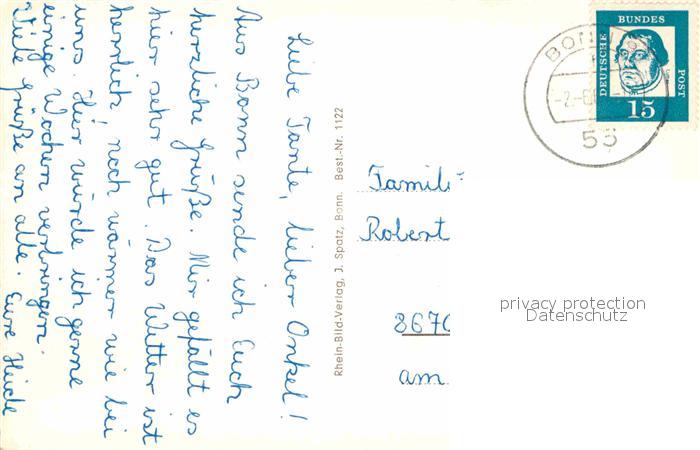 Liebe Tante, lieber Onkel!
Aus Bonn sende ich Euch
herzliche Grüße. Mir gefällt es
hier sehr gut. Das Wetter ist
herrlich, noch wärmer wie bei
uns. Hier würde ich gerne
einige Wochen verbringen.
Viele Grüße an alle. Eure Heide
Rhein-Bild-Verlag, J. Spatz, Bonn. Best.-Nr. 1122
BONN
53
DEUTSCHE
BUNDES
POST
15
Famili
Robert
8670
am
privacy protection
Datenschutz